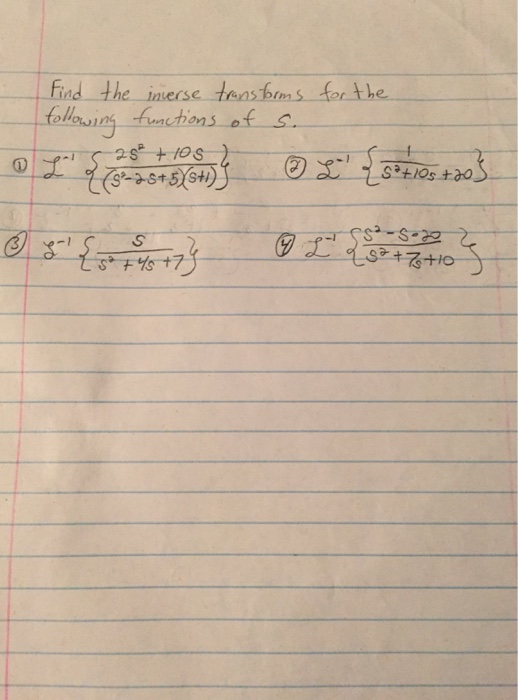 Find the inverse transforms for the
following functions of s.
① ℒ⁻¹ { (2s² + 10s) / ((s²-2s+5)(s+1)) } ② ℒ⁻¹ { 1 / (s²+10s+20) }
③ ℒ⁻¹ { s / (s² + 4s + 7) } ④ ℒ⁻¹ { (s²-s-20) / (s²+7s+10) }